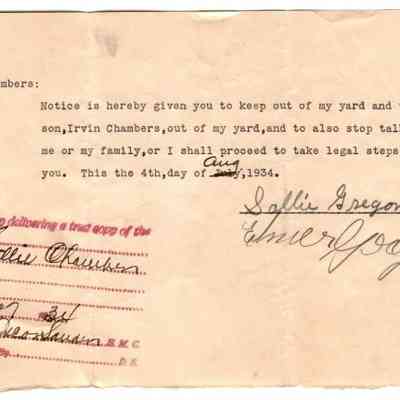 mbers:
Notice is hereby given you to keep out of my yard and
son,Irvin Chambers,out of my yard,and to also stop tal
me or my family,or I shall proceed to take legal steps
Aug
you. This the 4th,day of July,1934.
Sallie Gregor
Elmer
delivering a true copy of the
Chambers
34
B. M. C.
D. S.